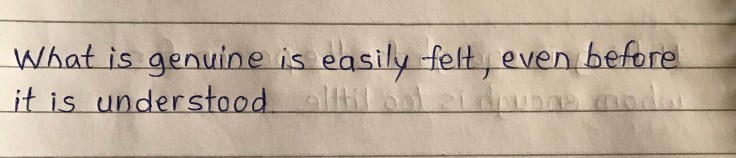 What is genuine is easily felt, even before
it is understood.